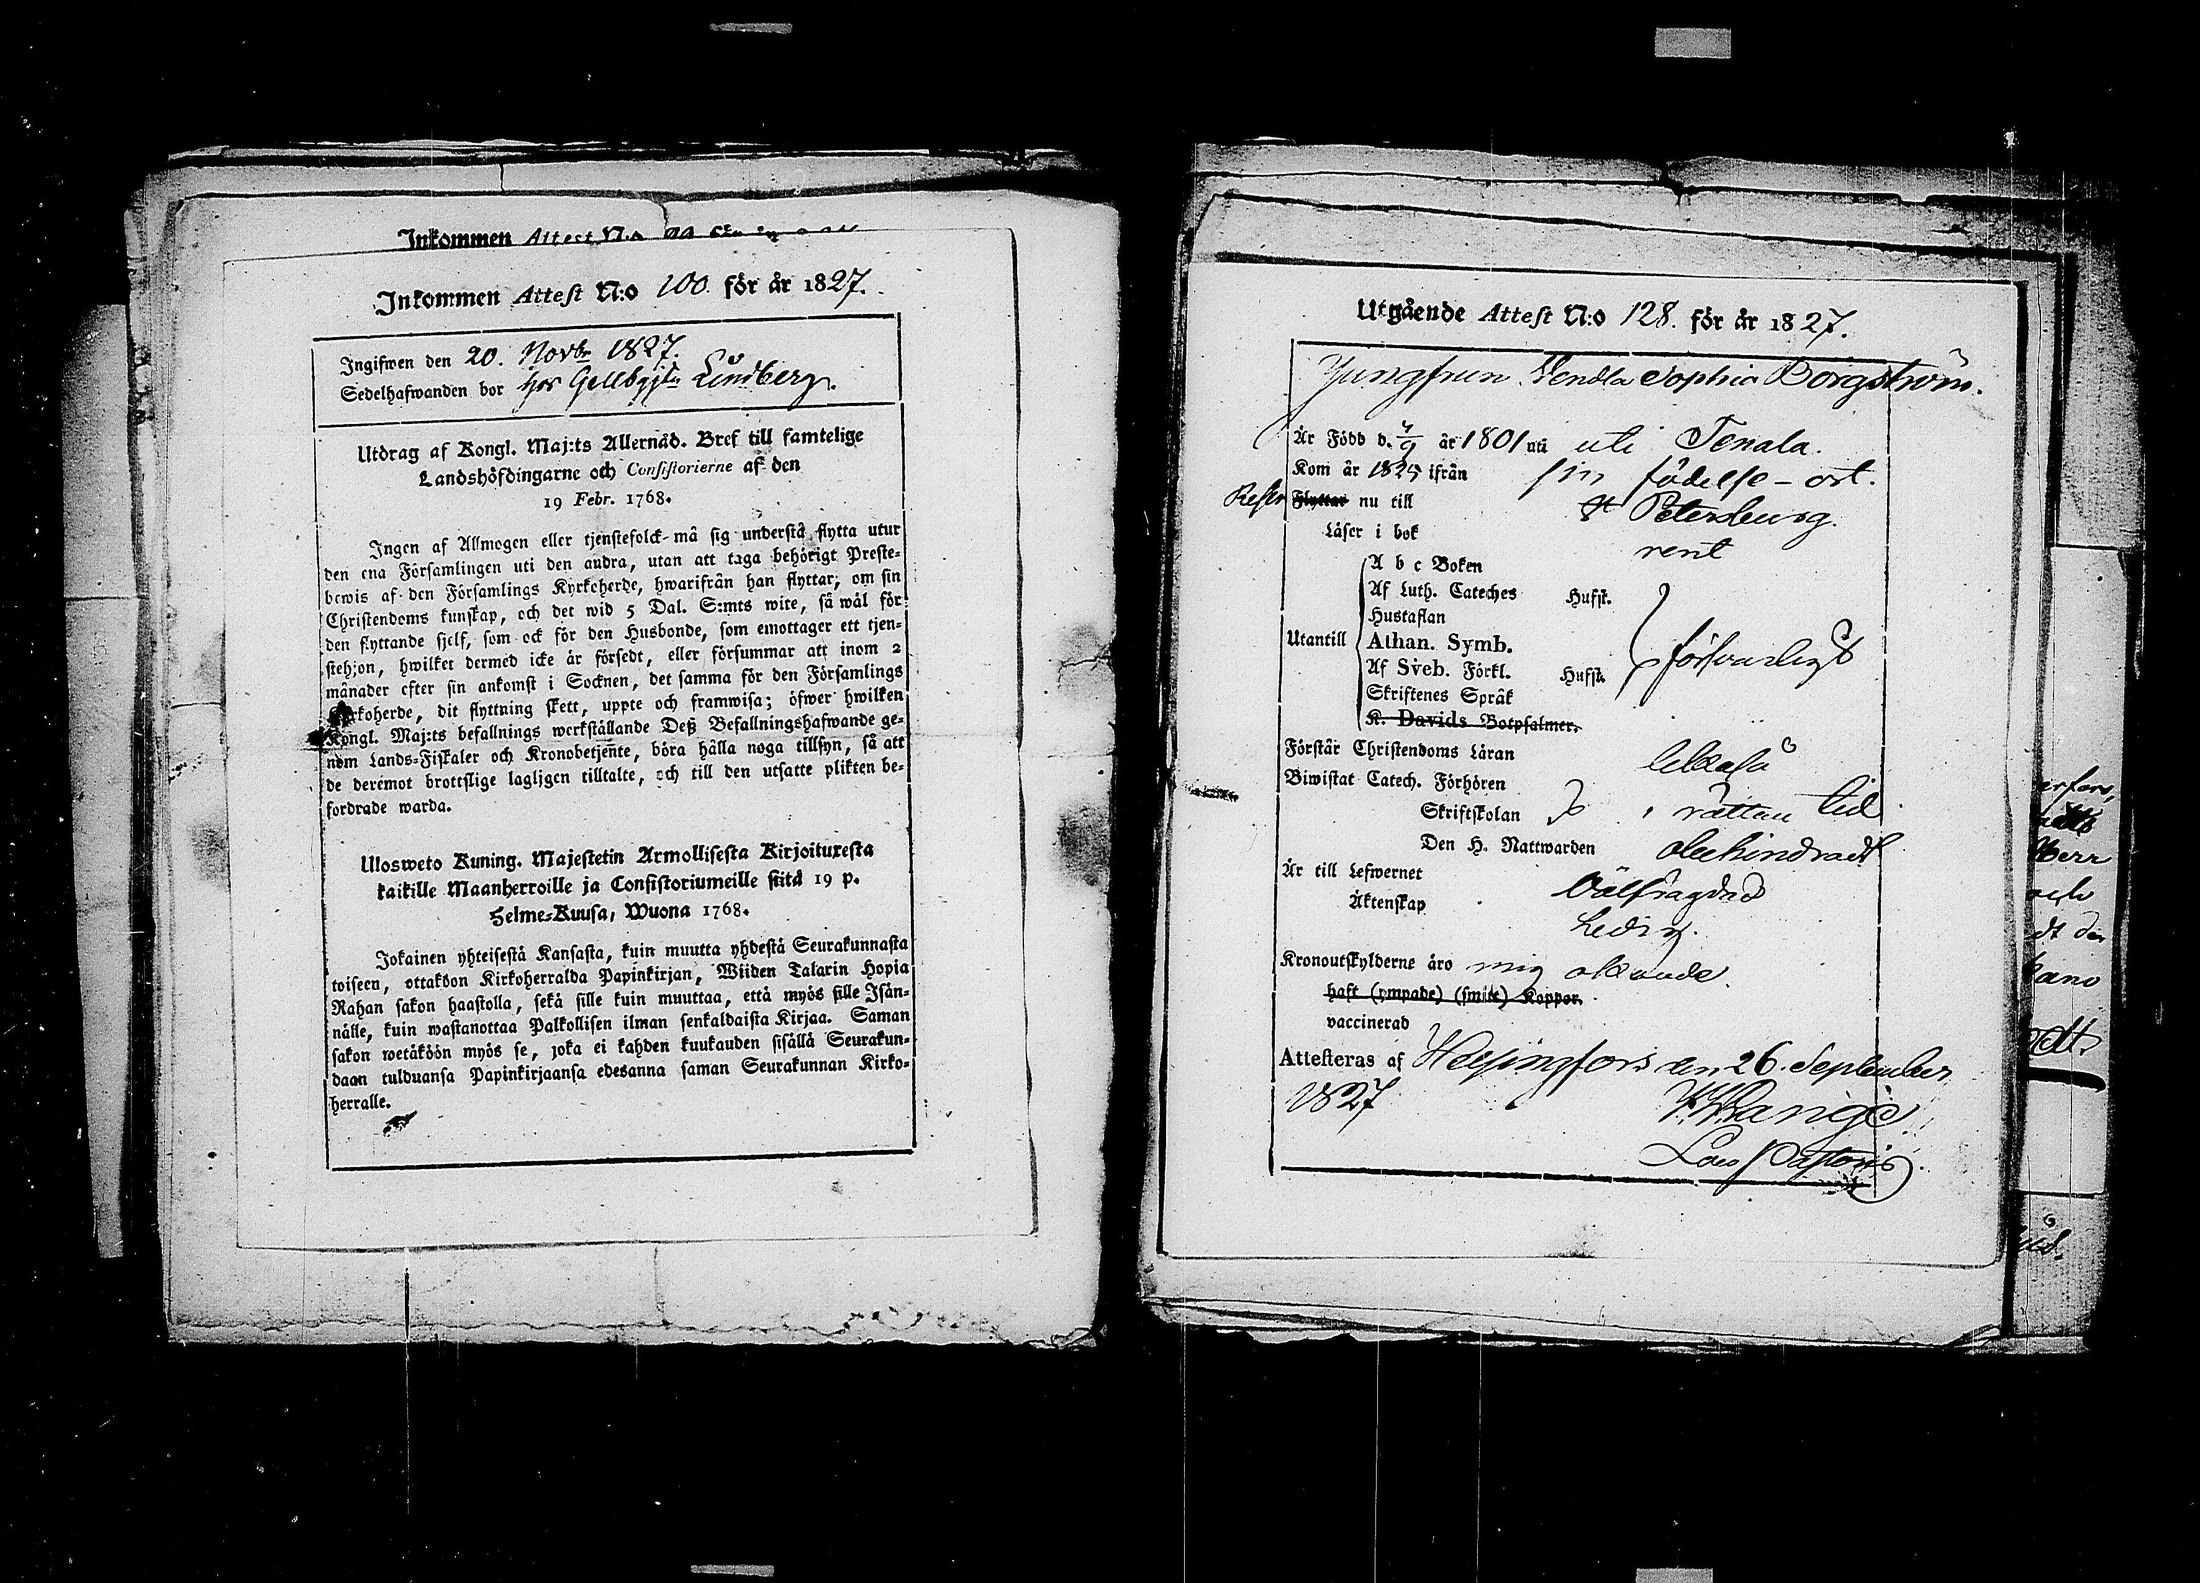 Inkommen Attest N:o
Inkommen Attest N:o 100. för år 1827.
Ingifwen den 20. Novbr 1827.
Sedelhafwanden bor hos Lindberg.
Utdrag af Kongl. Maj:ts Allernåd. Bref till samtelige
Landshöfdingarne och Consistorierne af den
19 Febr. 1768.
Ingen af Allmogen eller tjenstefolck må sig understå flytta utur
den ena Församlingen uti den andra, utan att taga behörigt Preste-
bewis af den Församlings Kyrkoherde, hwarifrån han flyttar, om sin
Christendoms kunskap, och det wid 5 Dal. S:mts wite, så wäl för
den flyttande sjelf, som ock för den Husbonde, som emottager ett tjen-
stehjon, hwilket dermed icke är försedt, eller försummar att inom 2
månader efter sin ankomst i Socknen, det samma för den Församlings
Kyrkoherde, dit flyttning skett, uppte och framwisa; öfwer hwilken
Kongl. Maj:ts befallnings werkställande Deß Befallningshafwande ge-
nom Lands-Fiskaler och Kronobetjente, böra hålla noga tillsyn, så att
de deremot brottslige lagligen tilltalte, och till den utsatte plikten be-
fordrade warda.
Ulosweto Kuning. Majestetin Armollisesta Kirjoituxesta
kaikille Maanherroille ja Consistoriumeille siitä 19 p.
Helme-Kuusa, Wuona 1768.
Jokainen yhteisestä Kansasta, kuin muutta yhdestä Seurakunnasta
toiseen, ottakoon Kirkoherralda Papinkirjan, Wiiden Talarin Hopia
Rahan sakon haastolla, sekä sille kuin muuttaa, että myös sille Isän-
nälle, kuin wastanottaa Palkollisen ilman senkaldaista Kirjaa. Saman
sakon wetäköön myös se, joka ei kahden kuukauden sisällä Seurakun-
daan tulduansa Papinkirjaansa edesanna saman Seurakunnan Kirko-
herralle.
Utgående Attest N:o 128. för år 1827.
Jungfrun Vendla Sophia Borgström.
Är Född d. 4/9 år 1801 uti uti Tenala.
Kom år 1825 ifrån sin födelse-ort.
Reser Flyttar nu till St Petersburg.
Läser i bok rent
A b c Boken
Af Luth. Cateches Husst.
Hustaflan
Utantill Athan. Symb. försvarligt
Af Sveb. Förkl. Husst.
Skriftenes Språk
K. Davids Botpsalmer.
Förstår Christendoms Läran likaså
Biwistat Catech. Förhören
Skriftskolan i rättan tid
Den H. Nattwarden obehindradt
Är till Lefwernet välfrägdad
Äktenskap Ledig.
Kronoutskylderne äro mig okände.
haft (ympade) (smitt) Koppor.
vaccinerad
Attesteras af Helsingfors den 26. September
1827
Loco Pastoris.